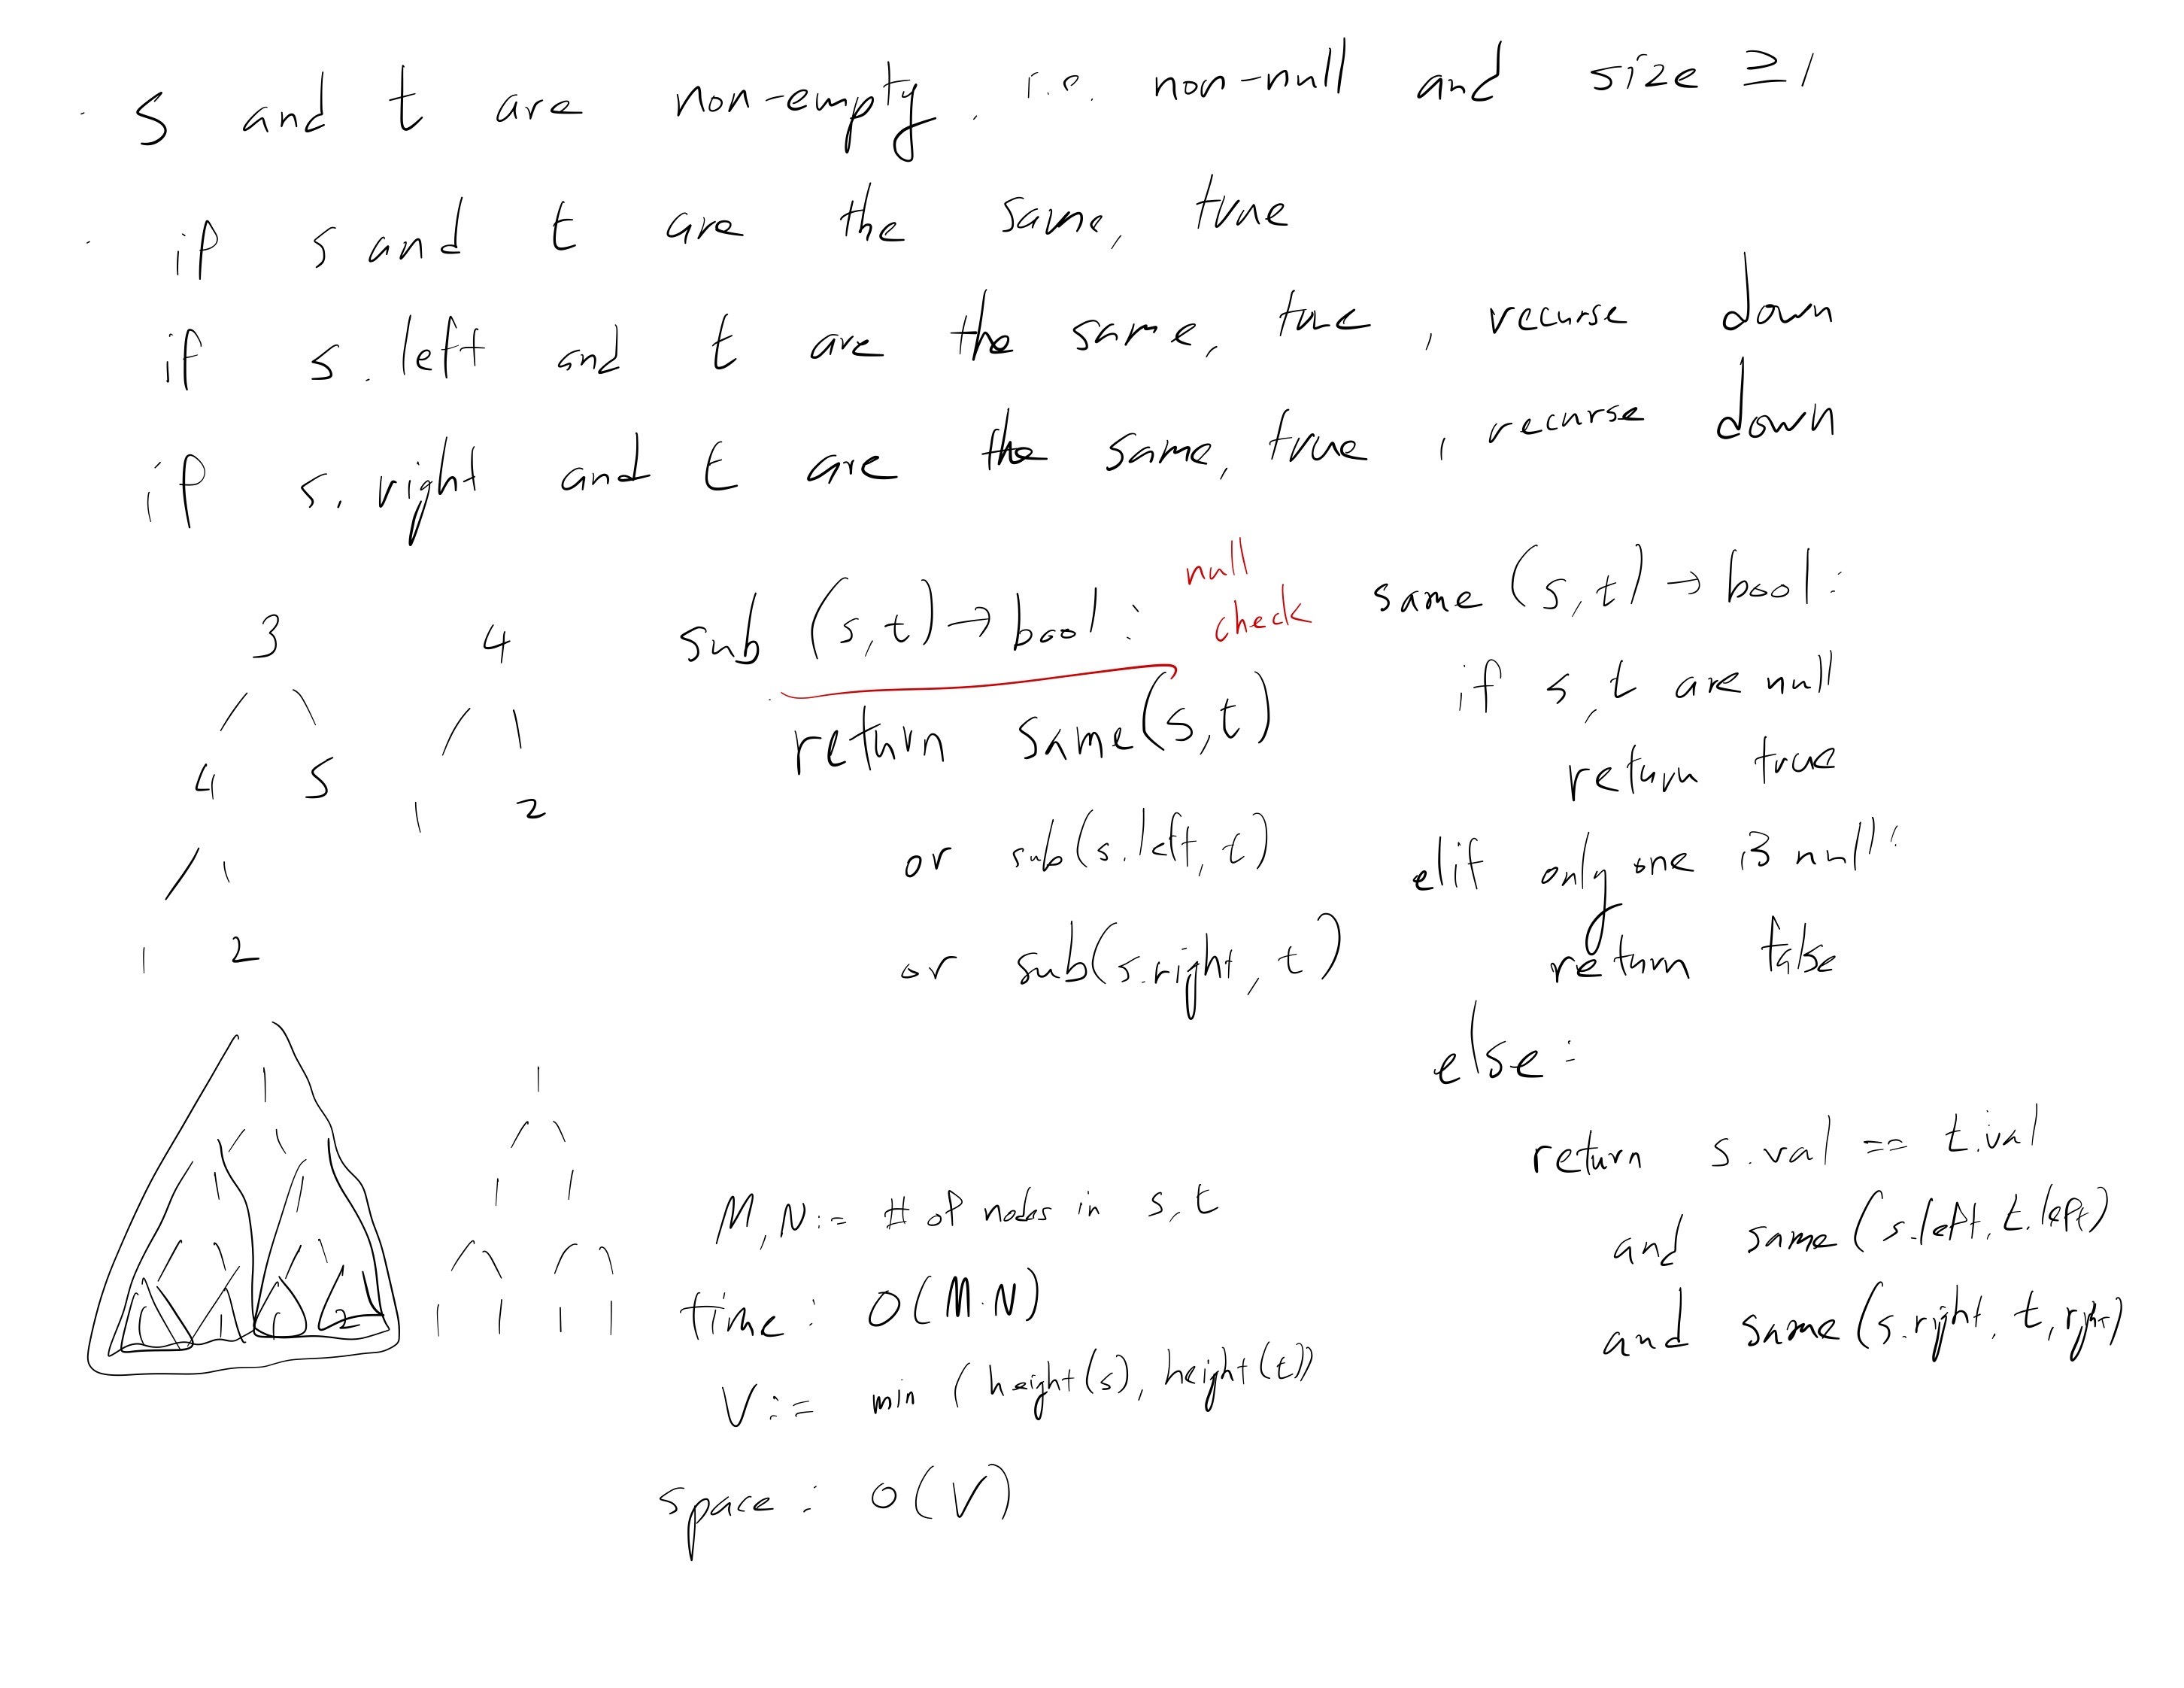 · s and t are non-empty. i.e. non-null and size ≥ 1
· if s and t are the same, true
if s.left and t are the same, true, recurse down
if s.right and t are the same, true, recurse down
3
4 5
1 2
4
1 2
sub (s,t) → bool:
null
check
return same(s,t)
or sub(s.left, t)
or sub(s.right, t)
same (s,t) → bool:
if s,t are null
return true
elif only one is null:
return false
else:
return s.val == t.val
and same(s.left, t.left)
and same(s.right, t,right)
1
1 1
1 1 1 2
1
1 1
1 1 1 1
M,N := # of nodes in s,t
time: O(M·N)
V := min (height(s), height(t))
space: O(V)